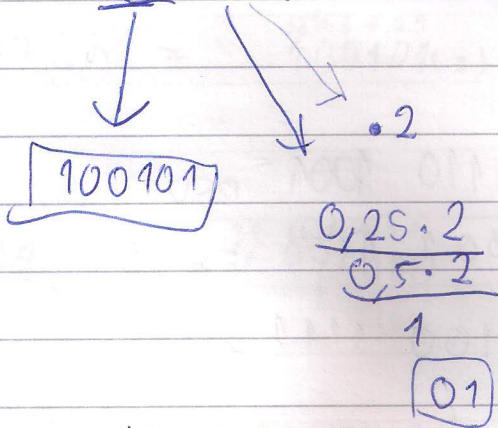 ·2
100101
0,25·2
0,5·2
1
01